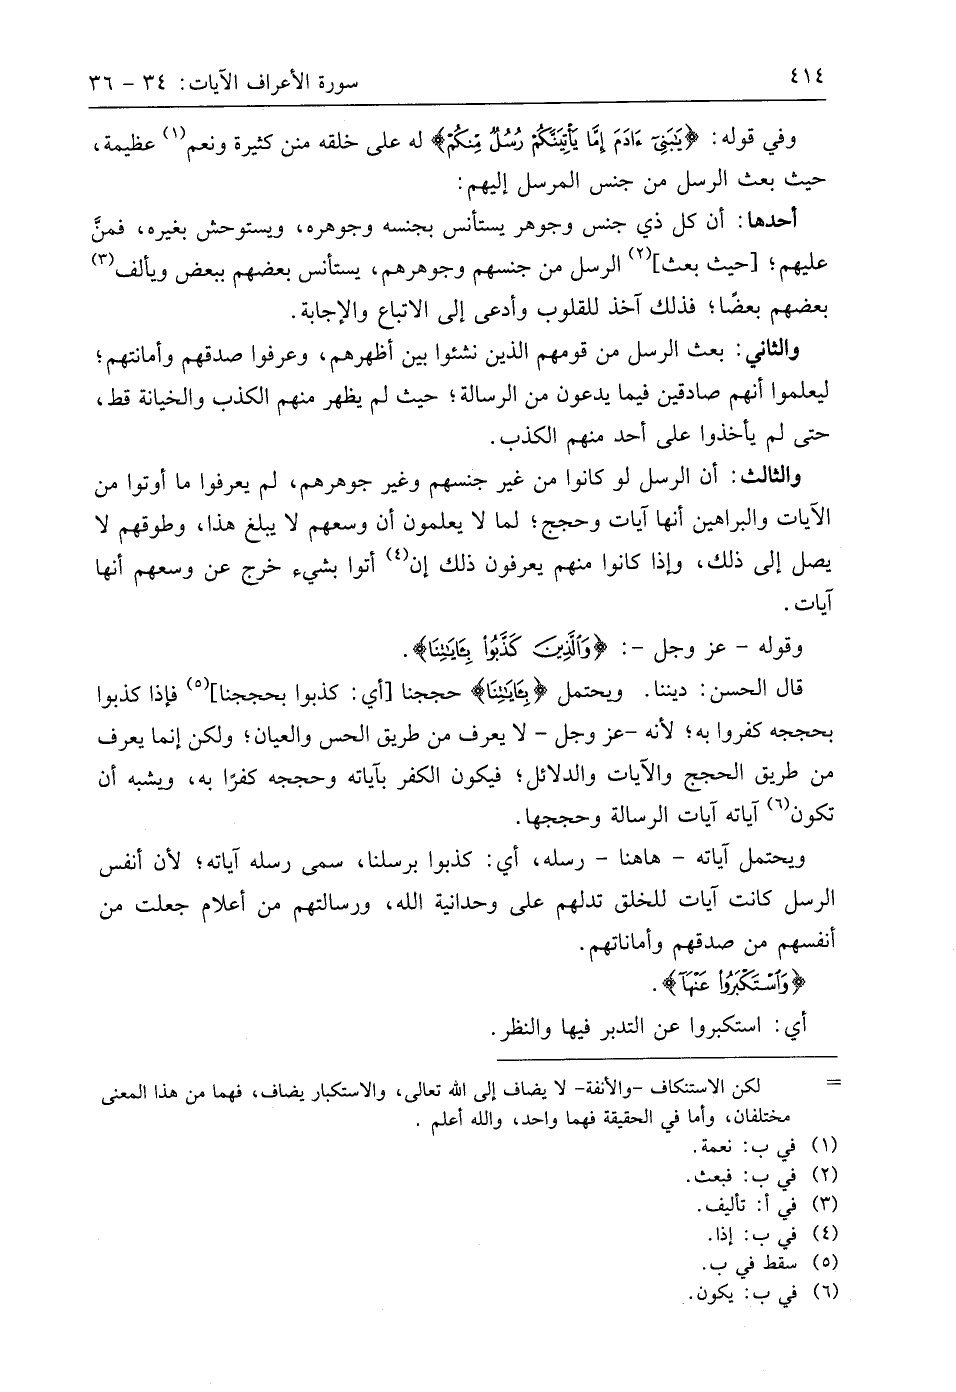 ٤١٤
سورة الأعراف الآيات: ٣٤ - ٣٦
وفي قوله: ﴿يَبَنِىٓ ءَادَمَ إِمَّا يَأْتِيَنَّكُمْ رُسُلٌ مِّنكُمْ﴾ له على خلقه منن كثيرة ونعم(١) عظيمة،
حيث بعث الرسل من جنس المرسل إليهم:
أحدها: أن كل ذي جنس وجوهر يستأنس بجنسه وجوهره، ويستوحش بغيره، فمنَّ
عليهم؛ [حيث بعث](٢) الرسل من جنسهم وجوهرهم، يستأنس بعضهم ببعض ويألف(٣)
بعضهم بعضًا؛ فذلك آخذ للقلوب وأدعى إلى الاتباع والإجابة.
والثاني: بعث الرسل من قومهم الذين نشئوا بين أظهرهم، وعرفوا صدقهم وأمانتهم؛
ليعلموا أنهم صادقين فيما يدعون من الرسالة؛ حيث لم يظهر منهم الكذب والخيانة قط،
حتى لم يأخذوا على أحد منهم الكذب.
والثالث: أن الرسل لو كانوا من غير جنسهم وغير جوهرهم، لم يعرفوا ما أوتوا من
الآيات والبراهين أنها آيات وحجج؛ لما لا يعلمون أن وسعهم لا يبلغ هذا، وطوقهم لا
يصل إلى ذلك، وإذا كانوا منهم يعرفون ذلك إن(٤) أتوا بشيء خرج عن وسعهم أنها
آيات.
وقوله - عز وجل -: ﴿وَٱلَّذِينَ كَذَّبُوا۟ بِـَٔايَـٰتِنَا﴾.
قال الحسن: ديننا. ويحتمل ﴿بِـَٔايَـٰتِنَا﴾ حججنا [أي: كذبوا بحججنا](٥) فإذا كذبوا
بحججه كفروا به؛ لأنه -عز وجل - لا يعرف من طريق الحس والعيان؛ ولكن إنما يعرف
من طريق الحجج والآيات والدلائل؛ فيكون الكفر بآياته وحججه كفرًا به، ويشبه أن
تكون(٦) آياته آيات الرسالة وحججها.
ويحتمل آياته - هاهنا - رسله، أي: كذبوا برسلنا، سمى رسله آياته؛ لأن أنفس
الرسل كانت آيات للخلق تدلهم على وحدانية الله، ورسالتهم من أعلام جعلت من
أنفسهم من صدقهم وأماناتهم.
﴿وَٱسْتَكْبَرُوا۟ عَنْهَآ﴾.
أي: استكبروا عن التدبر فيها والنظر.
= لكن الاستنكاف -والأنفة- لا يضاف إلى الله تعالى، والاستكبار يضاف، فهما من هذا المعنى
مختلفان، وأما في الحقيقة فهما واحد، والله أعلم .
(١) في ب: نعمة.
(٢) في ب: فبعث.
(٣) في أ: تأليف.
(٤) في ب: إذا.
(٥) سقط في ب.
(٦) في ب: يكون.